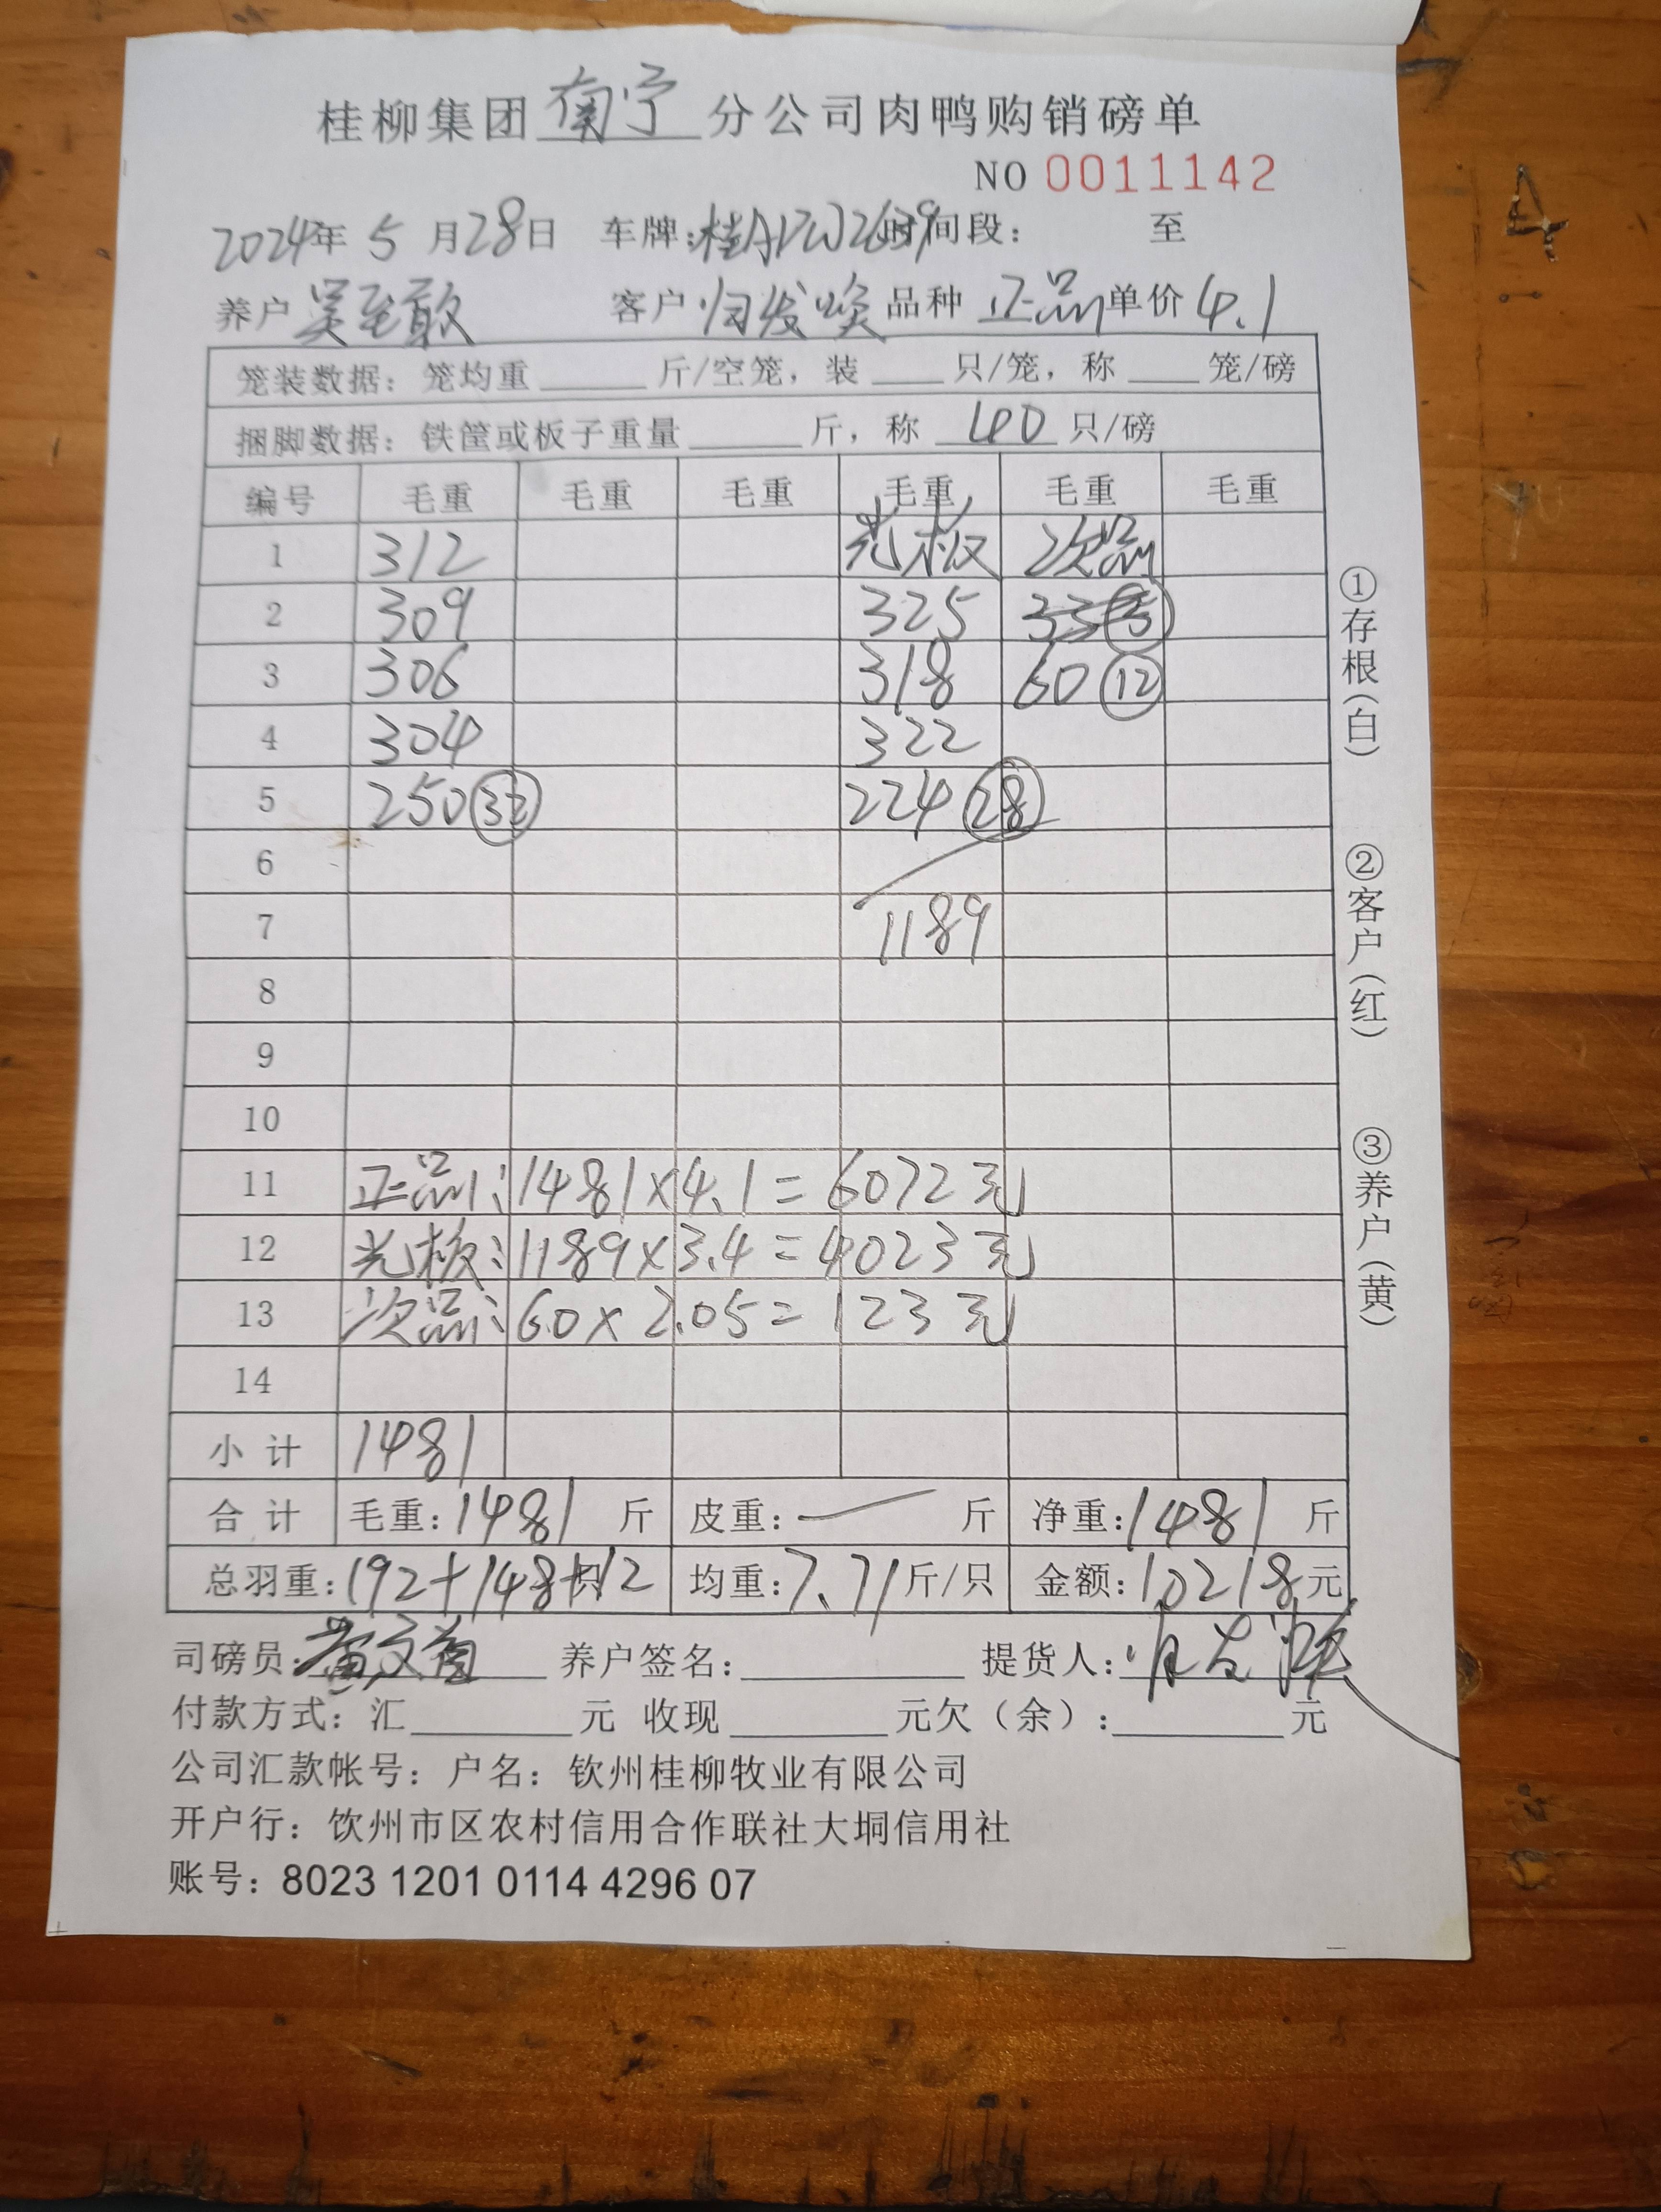 桂柳集团 南宁 分公司肉鸭购销磅单
NO 0011142
2024年 5 月28日 车牌:桂A 2639 时间段: 至
养户 吴至敢 客户 归发焕 品种 正品 单价 4.1
笼装数据: 笼均重 斤/空笼, 装 只/笼, 称 笼/磅
捆脚数据: 铁筐或板子重量 斤, 称 40 只/磅
编号 毛重 毛重 毛重 毛重 毛重 毛重
1 312 光板 次品
2 309 325
3 306 318 60 ⑫
4 304 322
5 250 ㉜ 224 ㉘
6
7 1189
8
9
10
11 正品:1481×4.1=6072元
12 光板:1189×3.4=4023元
13 次品:60×2.05=123元
14
小计 1481
合计 毛重:1481 斤 皮重:— 斤 净重:1481 斤
总羽重:192+148+12 只 均重:7.71斤/只 金额:10218元
司磅员: 养户签名: 提货人:
付款方式: 汇 元 收现 元欠(余): 元
公司汇款帐号: 户名: 钦州桂柳牧业有限公司
开户行: 饮州市区农村信用合作联社大垌信用社
账号: 8023 1201 0114 4296 07
①存根(白)
②客户(红)
③养户(黄)